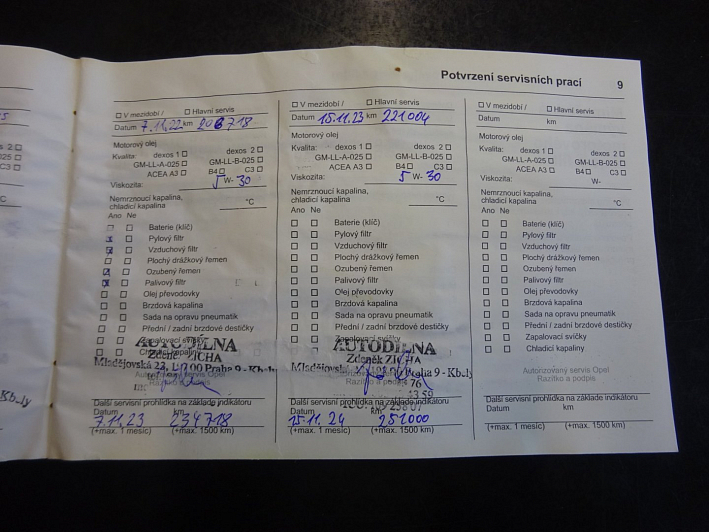 Potvrzení servisních prací 9
V mezidobí / Hlavní servis
Datum 7.11.22 km 206718
Motorový olej
Kvalita: dexos 1 dexos 2
GM-LL-A-025 GM-LL-B-025
ACEA A3 B4 C3
Viskozita: 5 W- 30
Nemrznoucí kapalina,
chladicí kapalina °C
Ano Ne
Baterie (klíč)
Pylový filtr
Vzduchový filtr
Plochý drážkový řemen
Ozubený řemen
Palivový filtr
Olej převodovky
Brzdová kapalina
Sada na opravu pneumatik
Přední / zadní brzdové destičky
Zapalovací svíčky
Chladicí kapaliny
AUTODÍLNA
Zdeněk ZICHA
Mladějovská 23, Praha 9 - Kb
Autorizovaný servis Opel
Razítko a podpis
Další servisní prohlídka na základě indikátoru
Datum km
7.11.23 234718
(+max. 1 měsíc) (+max. 1500 km)
V mezidobí / Hlavní servis
Datum 15.11.23 km 221004
Motorový olej
Kvalita: dexos 1 dexos 2
GM-LL-A-025 GM-LL-B-025
ACEA A3 B4 C3
Viskozita: 5 W- 30
Nemrznoucí kapalina,
chladicí kapalina °C
Ano Ne
Baterie (klíč)
Pylový filtr
Vzduchový filtr
Plochý drážkový řemen
Ozubený řemen
Palivový filtr
Olej převodovky
Brzdová kapalina
Sada na opravu pneumatik
Přední / zadní brzdové destičky
Zapalovací svíčky
AUTODÍLNA
Zdeněk ZICHA
Mladějovská Praha 9 - Kb
Razítko a podpis
Další servisní prohlídka na základě indikátoru
Datum km
15.11.24 251000
(+max. 1 měsíc) (+max. 1500 km)
V mezidobí / Hlavní servis
Datum km
Motorový olej
Kvalita: dexos 1 dexos 2
GM-LL-A-025 GM-LL-B-025
ACEA A3 B4 C3
Viskozita: W-
Nemrznoucí kapalina,
chladicí kapalina °C
Ano Ne
Baterie (klíč)
Pylový filtr
Vzduchový filtr
Plochý drážkový řemen
Ozubený řemen
Palivový filtr
Olej převodovky
Brzdová kapalina
Sada na opravu pneumatik
Přední / zadní brzdové destičky
Zapalovací svíčky
Chladicí kapaliny
Autorizovaný servis Opel
Razítko a podpis
Další servisní prohlídka na základě indikátoru
Datum km
(+max. 1 měsíc) (+max. 1500 km)